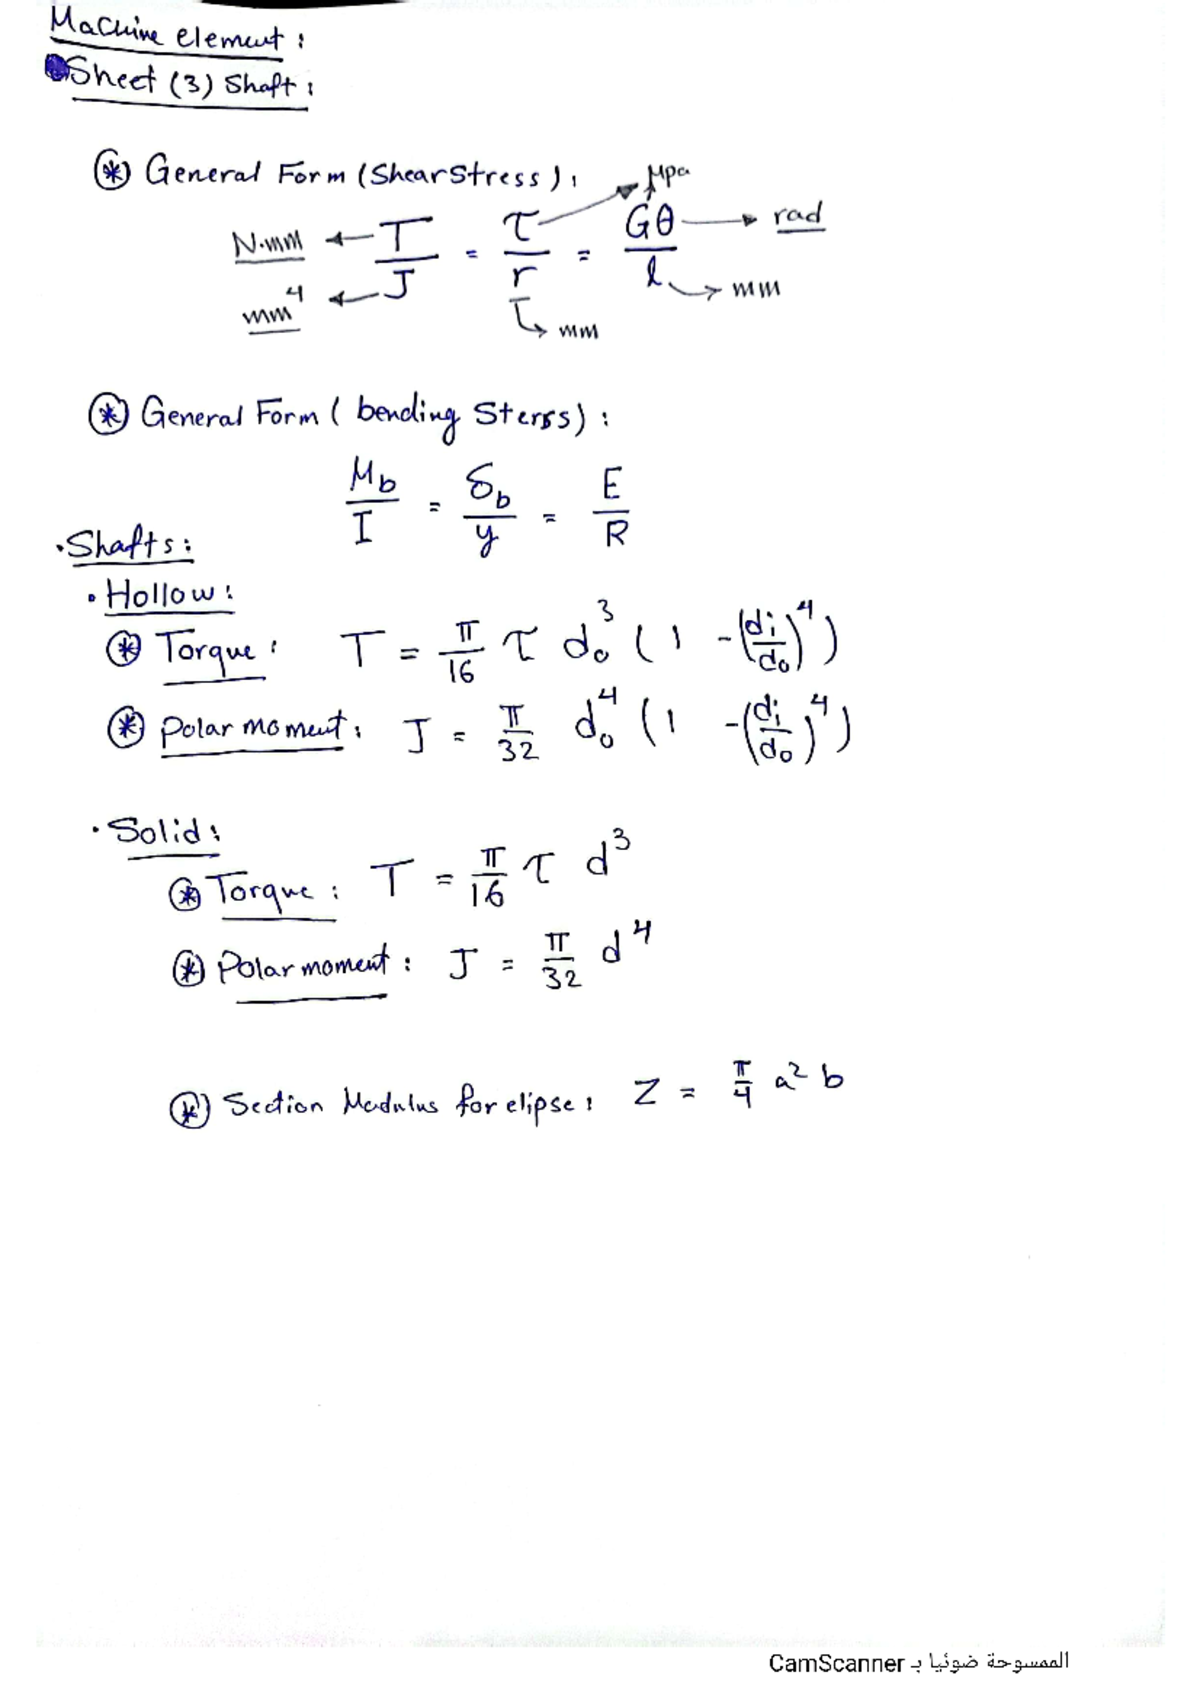 Machine element :
Sheet (3) Shaft :
⊛ General Form (Shear Stress) :
N.mm ← T/J → mm⁴ = τ/r = Gθ/l
Mpa
rad
mm
mm
⊛ General Form ( bending Sterss) :
M_b/I = δ_b/y = E/R
• Shafts :
• Hollow :
⊛ Torque : T = π/16 τ d₀³ (1 - (di/do)⁴)
⊛ Polar moment : J = π/32 d₀⁴ (1 - (di/do)⁴)
• Solid :
⊛ Torque : T = π/16 τ d³
⊛ Polar moment : J = π/32 d⁴
⊛ Section Modulus for elipse : Z = π/4 a² b
الممسوحة ضوئيا بـ CamScanner